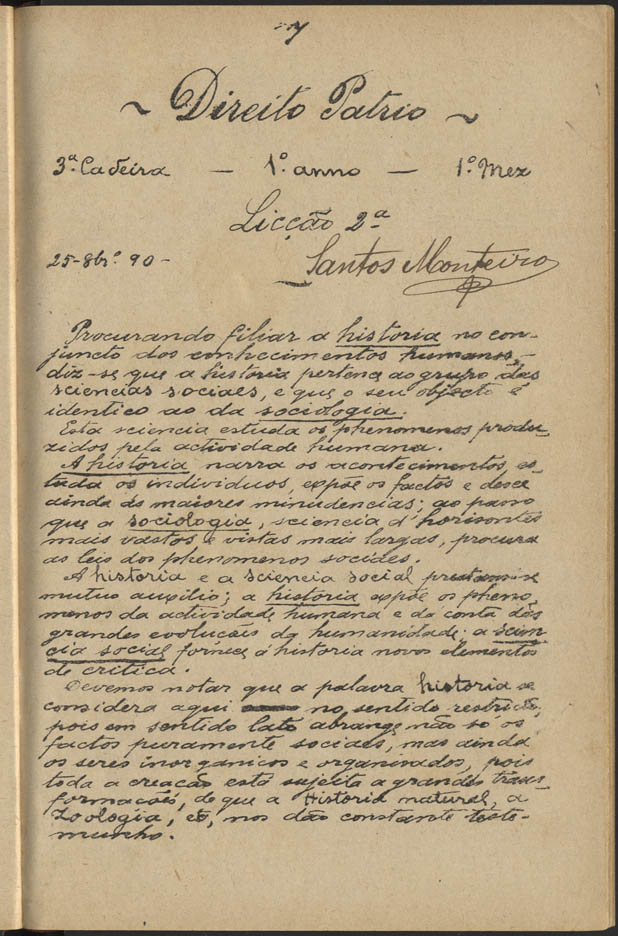 ~ Direito Patrio ~
3ª Cadeira — 1º anno — 1º Mez
Licção 2ª
25-8br.º 90-
Santos Monteiro
Procurando filiar a historia no con-
juncto dos conhecimentos humanos,
diz-se que a historia pertence ao grupo das
sciencias sociaes, e que o seu objecto é
identico ao da sociologia.
Esta sciencia estuda os phenomenos produ-
zidos pela actividade humana.
A historia, narra os acontecimentos, es-
tuda os individuos, expõe os factos e desce
ainda ás maiores minudencias; ao passo
que a sociologia, sciencia d'horisontes
mais vastos e vistas mais largas, procura
as leis dos phenomenos sociaes.
A historia e a sciencia social prestam-se
mutuo auxilio; a historia expõe os pheno-
menos da actividade humana e dá conta das
grandes evoluções da humanidade; a scien-
cia social fornece á historia novos elementos
de critica.
Devemos notar que a palavra historia se
considera aqui no sentido restricto,
pois em sentido lato abrange não só os
factos puramente sociaes, mas ainda
os seres inorganicos e organisados, pois
toda a creação está sujeita a grandes trans-
formações, de que a Historia natural, a
Zoologia, etc, nos dão constante teste-
munho.